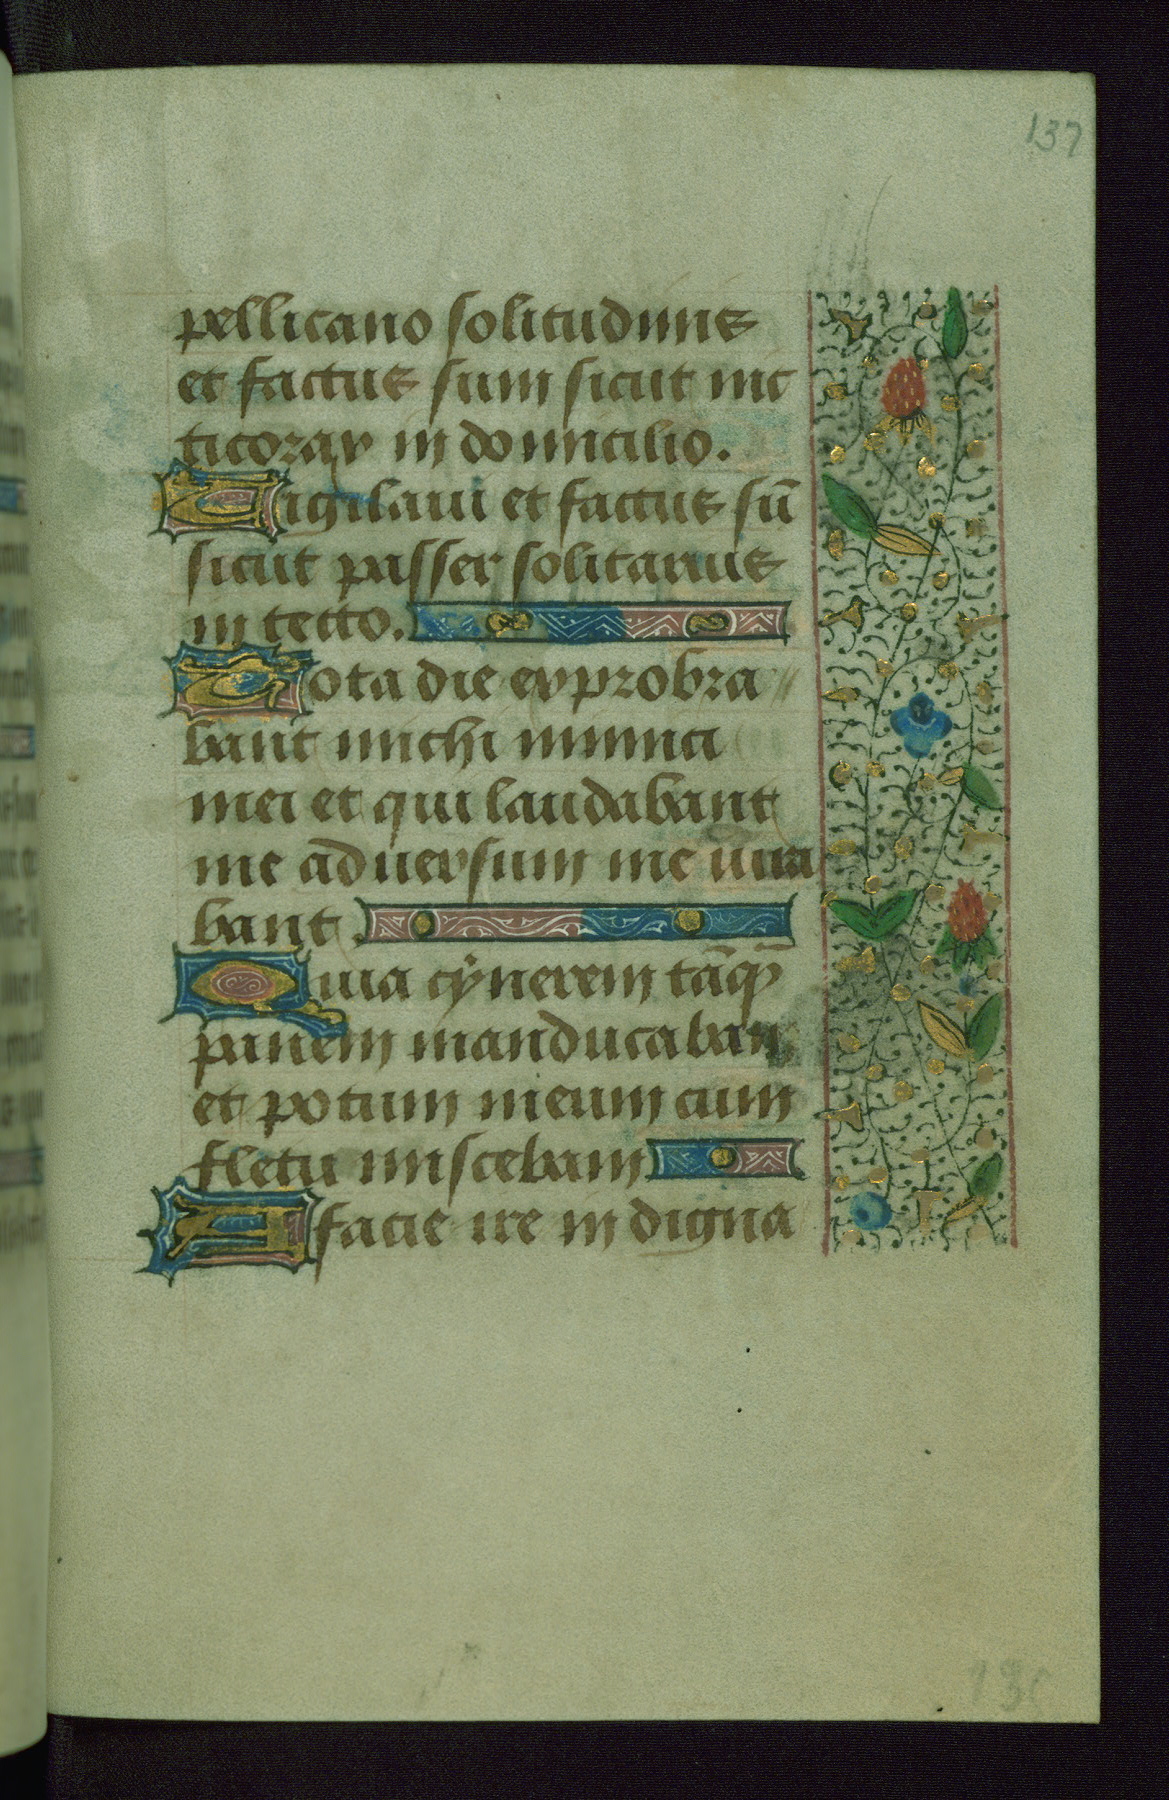 137
pellicano solitudinis
et factus sum sicut nic
ticorax in domicilio.
Vigilaui et factus sū
sicut passer solitarius
in tecto.
Tota die exprobra
bant michi inimici
mei et qui laudabant
me aduersum me iura
bant.
Quia cynerem tāq̄
panem manducabam
et potum meum cum
fletu miscebam
A facie ire indigna